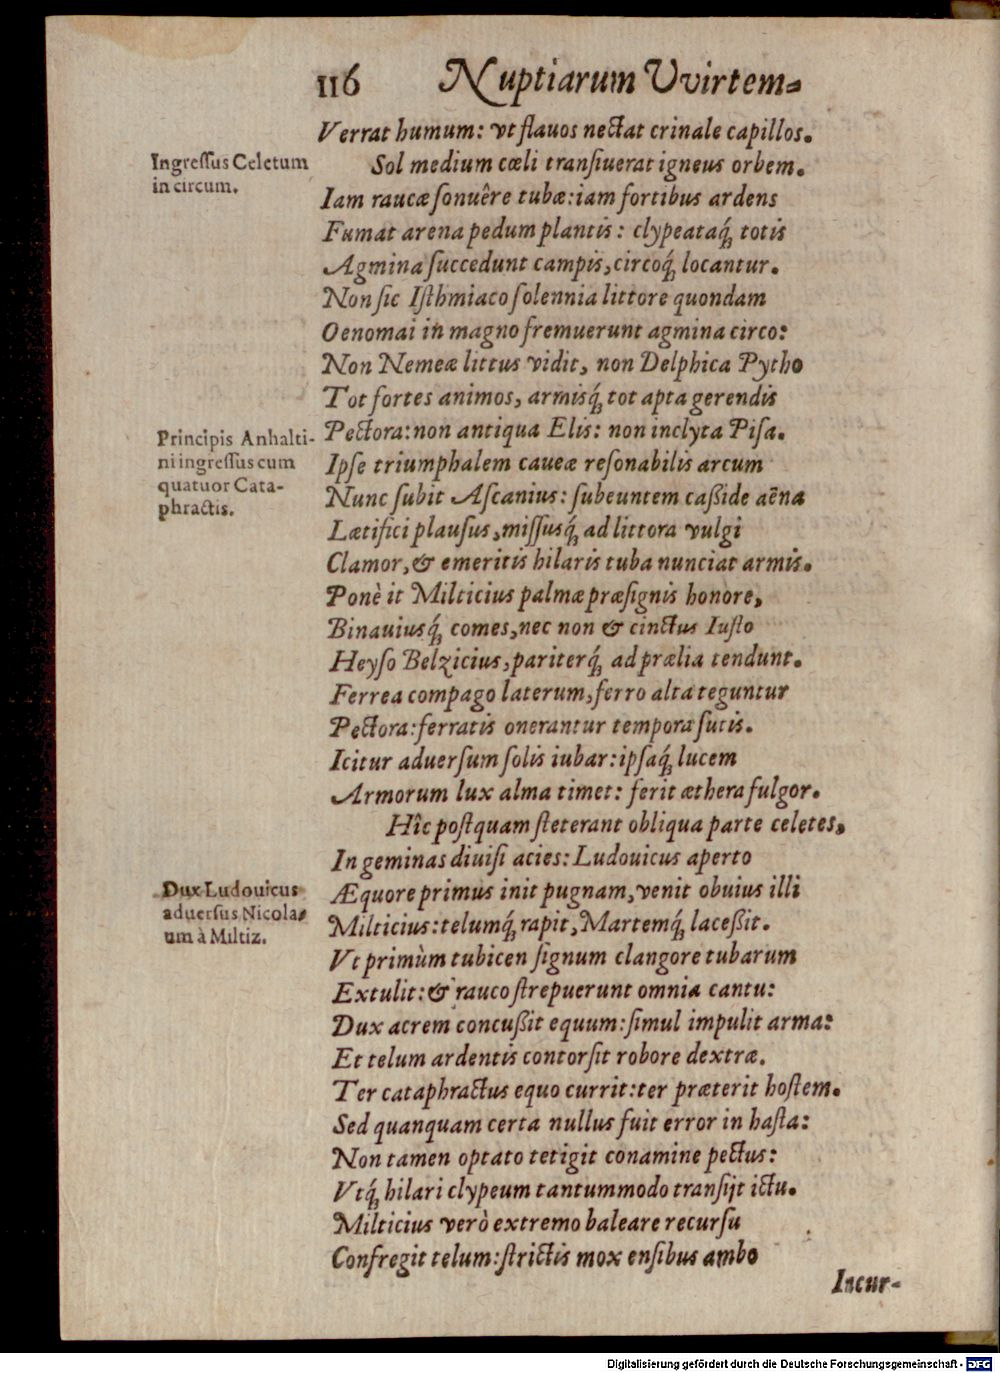 116 Nuptiarum Vvirtem-
Verrat humum: vt flauos nectat crinale capillos.
Ingressus Celetum
in circum.
Sol medium cœli transiuerat igneus orbem.
Iam raucæ sonuêre tubæ: iam fortibus ardens
Fumat arena pedum plantis: clypeataq́ꝫ totis
Agmina succedunt campis, circoq́ꝫ locantur.
Non sic Isthmiaco solennia littore quondam
Oenomai in magno fremuerunt agmina circo:
Non Nemeæ littus vidit, non Delphica Pytho
Tot fortes animos, armisq́ꝫ tot apta gerendis
Pectora: non antiqua Elis: non inclyta Pisa.
Principis Anhalti-
ni ingressus cum
quatuor Cata-
phractis.
Ipse triumphalem caueæ resonabilis arcum
Nunc subit Ascanius: subeuntem caßide aëna
Lætifici plausus, missusq́ꝫ ad littora vulgi
Clamor, & emeritis hilaris tuba nunciat armis.
Ponè it Milticius palmæ præsignis honore,
Binauiusq́ꝫ comes, nec non & cinctus Iusto
Heyso Belzicius, pariterq́ꝫ ad prælia tendunt.
Ferrea compago laterum, ferro alta teguntur
Pectora: ferratis onerantur tempora sutis.
Icitur aduersum solis iubar: ipsaq́ꝫ lucem
Armorum lux alma timet: ferit æthera fulgor.
Hîc postquam steterant obliqua parte celetes,
In geminas diuisi acies: Ludouicus aperto
Dux Ludouicus
aduersus Nicola-
um à Miltiz.
Æquore primus init pugnam, venit obuius illi
Milticius: telumq́ꝫ rapit, Martemq́ꝫ laceßit.
Vt primùm tubicen signum clangore tubarum
Extulit: & rauco strepuerunt omnia cantu:
Dux acrem concußit equum: simul impulit arma:
Et telum ardentis contorsit robore dextræ.
Ter cataphractus equo currit: ter præterit hostem.
Sed quanquam certa nullus fuit error in hasta:
Non tamen optato tetigit conamine pectus:
Vtq́ꝫ hilari clypeum tantummodo transijt ictu.
Milticius verò extremo baleare recursu
Confregit telum: strictis mox ensibus ambo
Incur-
Digitalisierung gefördert durch die Deutsche Forschungsgemeinschaft - DFG